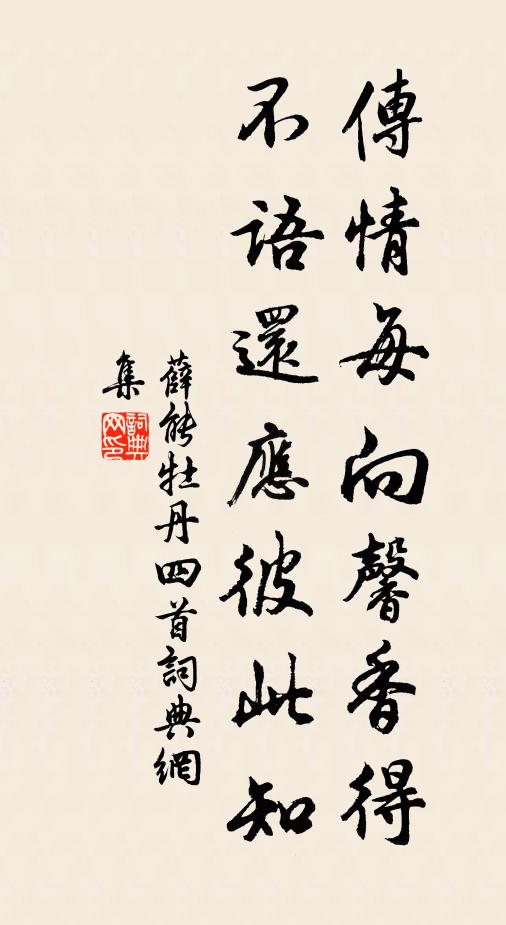 傳情每向馨香得
不語還應彼此知
薛能牡丹四首詞典網
集
詞典
网印